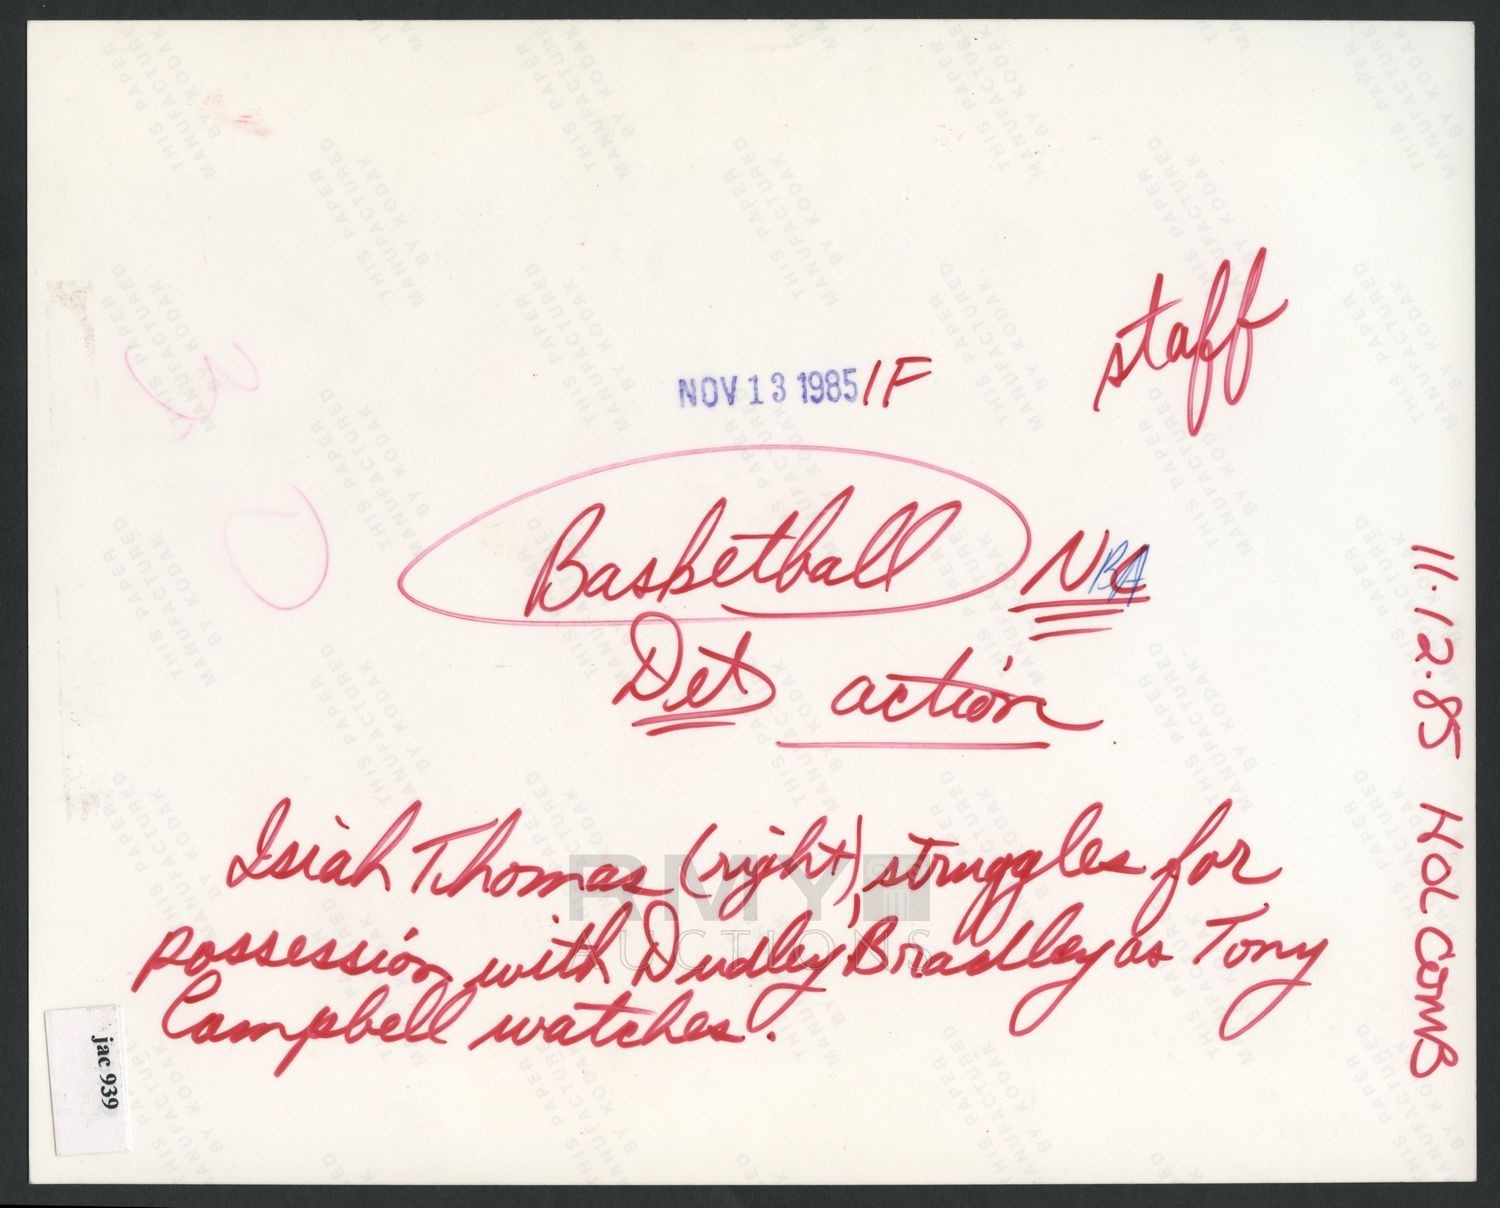 staff
NOV 13 1985 1F
Basketball NBA
Det action
Isiah Thomas (right), struggles for
possession with Dudley Bradley as Tony
Campbell watches.
11-12-85 HOLCOMB
jac 939
RMY
AUCTIONS
THIS PAPER
MANUFACTURED
BY KODAK